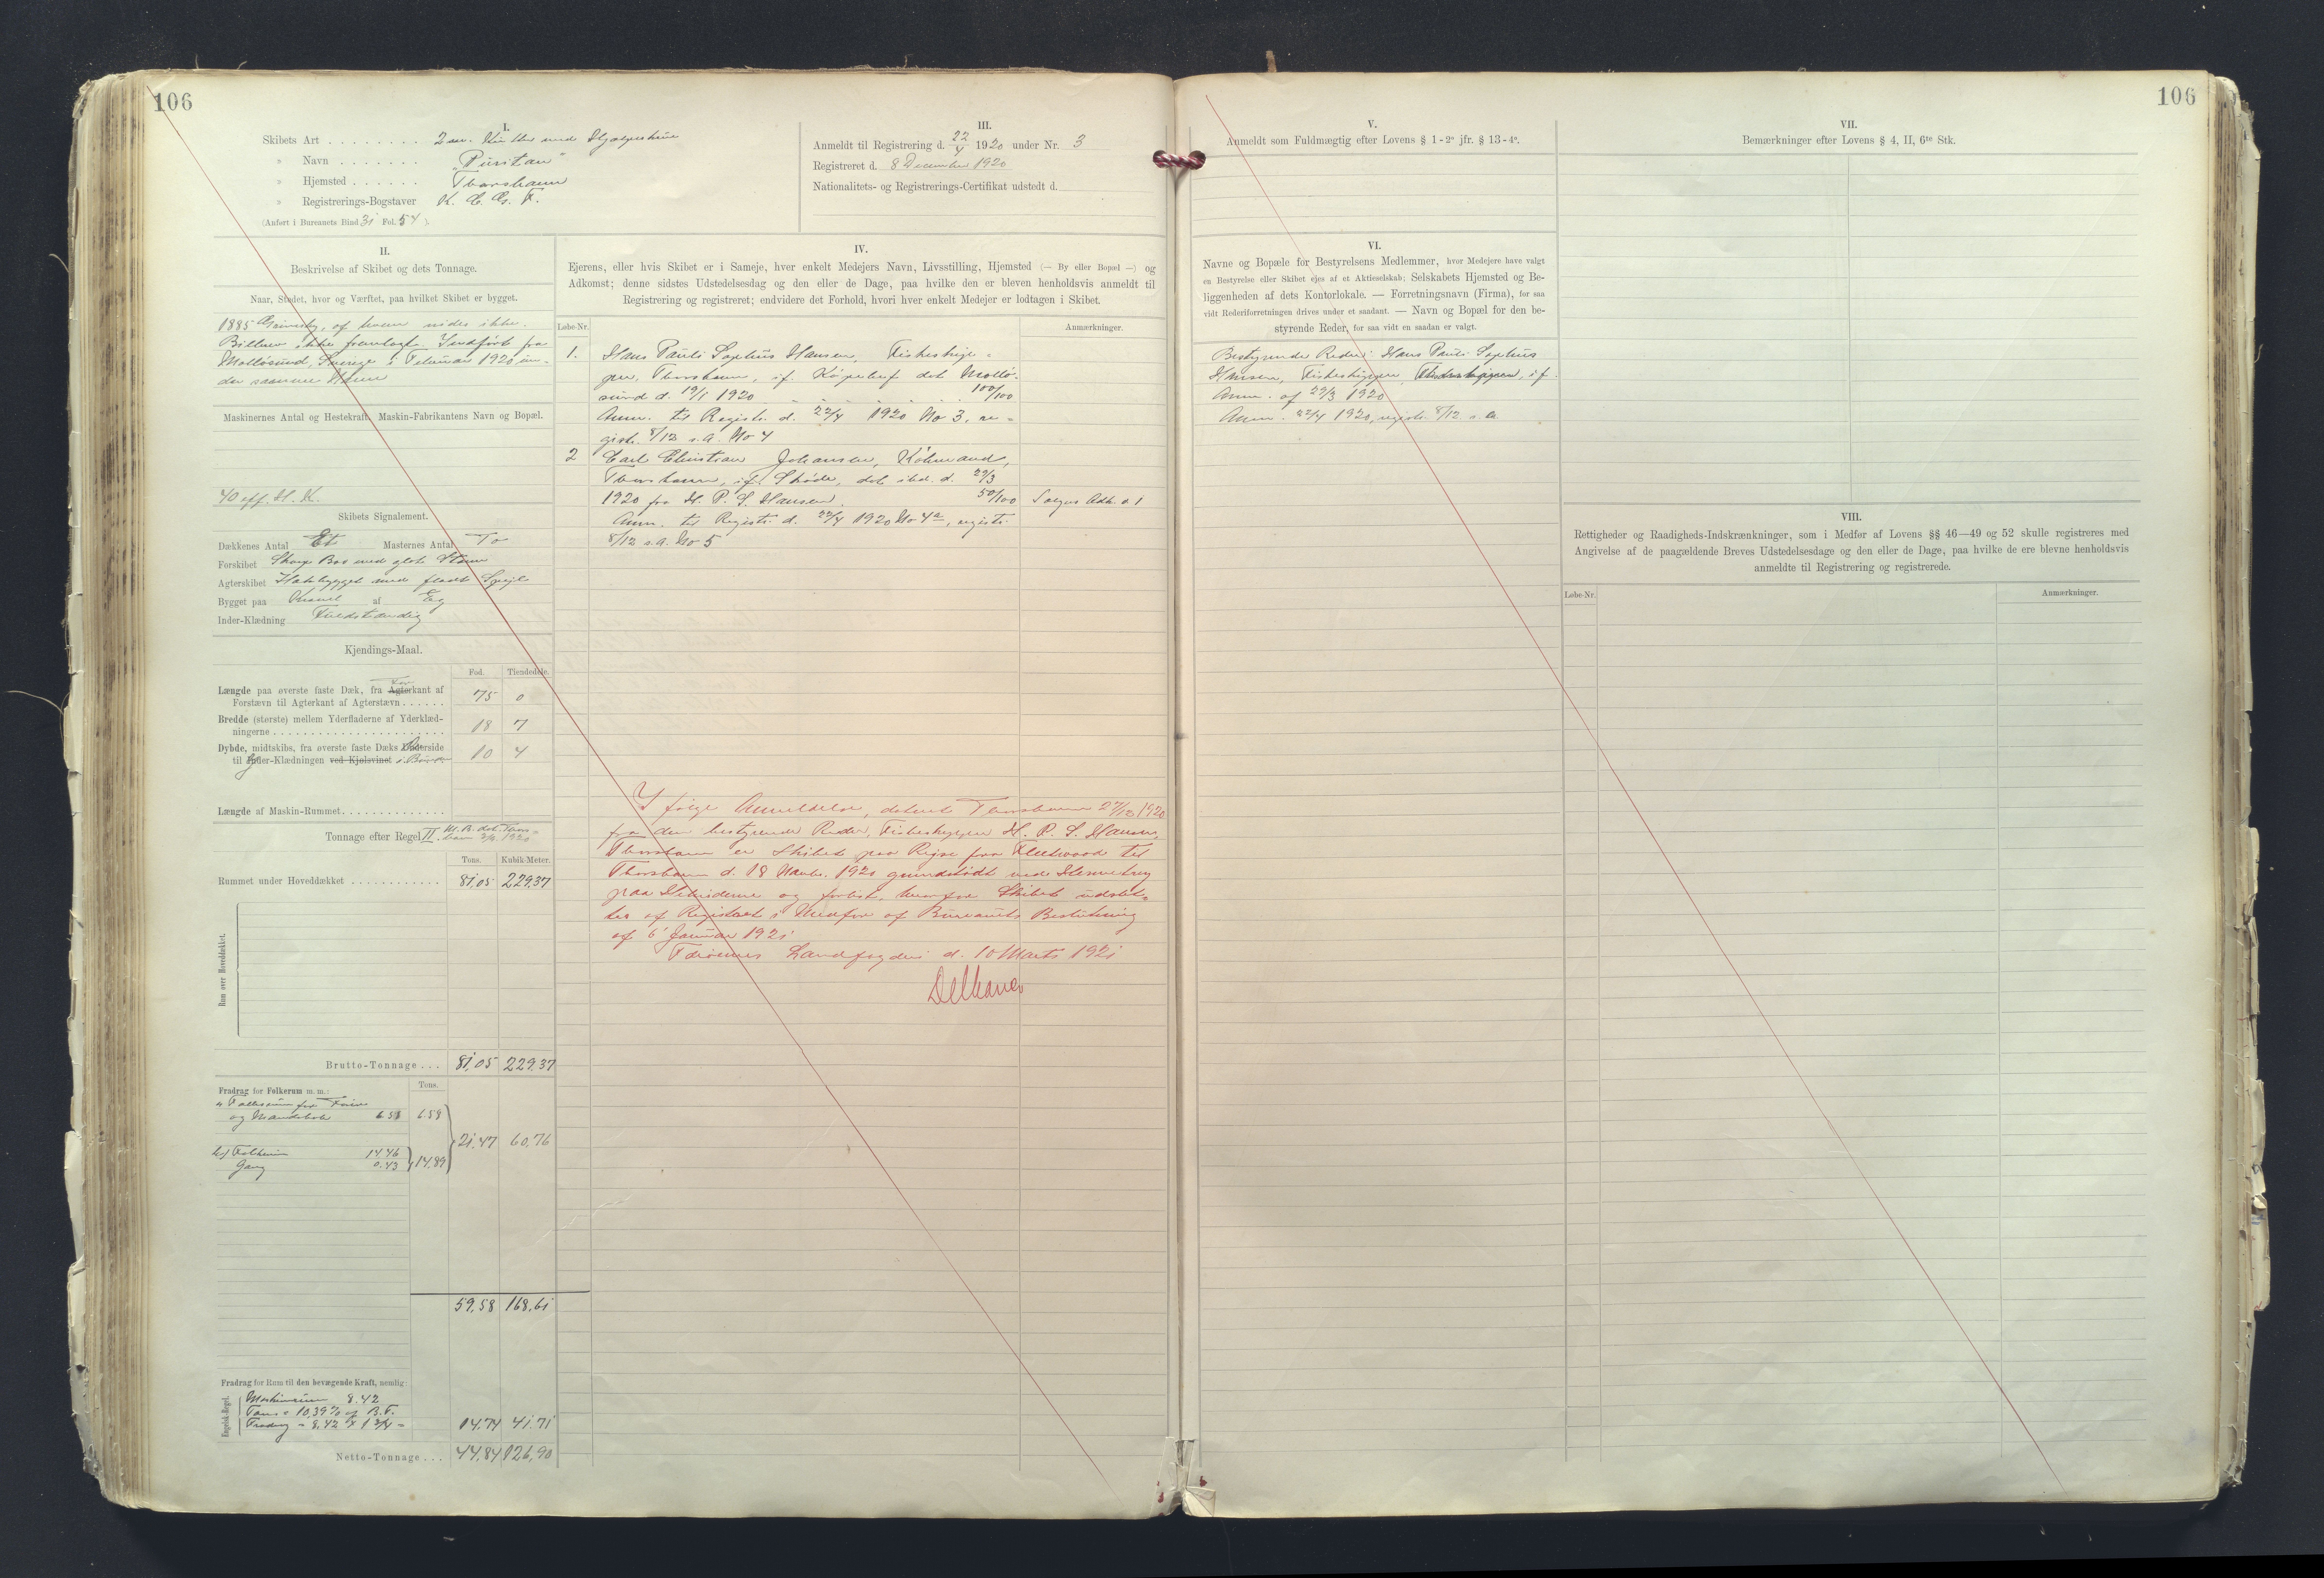 106
I.
Skibets Art . . . . . . . . 2 m. Kutter med Hjælpeskrue
" Navn . . . . . . . "Puritan"
" Hjemsted . . . . . . Thorshavn
" Registrerings-Bogstaver
(Anført i Bureauets Bind 31 Fol. 54).
III.
Anmeldt til Registrering d. 22/4 1920 under Nr. 3
Registreret d. 8 December 1920
Nationalitets- og Registrerings-Certifikat udstedt d.
II.
Beskrivelse af Skibet og dets Tonnage.
Naar, Stedet, hvor og Værftet, paa hvilket Skibet er bygget.
1885 Grimsby, af hvem vides ikke.
Bilbrev ikke fremlagt. Indført fra
Mollösund, Sverige i Februar 1920 un-
der samme Navn
Maskinernes Antal og Hestekraft, Maskin-Fabrikantens Navn og Bopæl.
40 eff. H. K.
Skibets Signalement.
Dækkenes Antal Et Masternes Antal To
Forskibet Skarp Bov med glat Stævn
Agterskibet Hækbygget med fladt Spejl
Bygget paa Kravel af Eg
Inder-Klædning Fuldstændig
Kjendings-Maal.
Fod. Tiendedele.
Længde paa øverste faste Dæk, fra Agterkant af For
Forstævn til Agterkant af Agterstævn . . . . . . 75 0
Bredde (største) mellem Yderfladerne af Yderklæd-
ningerne . . . . . . . . . . 18 7
Dybde, midtskibs, fra øverste faste Dæks Underside
til Inder-Klædningen ved Kjølsvinet 10 4
Længde af Maskin-Rummet. . . . . . . . . . . . . .
Tonnage efter Regel II. M. B. dat. Thors-
havn 1920
Tons. Kubik-Meter.
Rummet under Hoveddækket . . . . . . . . . . . . 81,05 229,37
Rum over Hoveddækket.
Brutto-Tonnage . . . 81,05 229,37
Fradrag for Folkerum m. m.: Tons.
a Folkerum for Fører
og Mandskab 6.58 6.58
21,47 60,76
b) Folkerum 14.46
Gang 0.43 14,89
59,58 168,61
Fradrag for Rum til den bevægende Kraft, nemlig:
Engelsk-Regel.
Maskinrum 8.42
Tons = 10,39% af B.T.
Fradrag = 8,42 × 1 3/4 = 14,74 41,71
Netto-Tonnage . . . 44,84 126,90
IV.
Ejerens, eller hvis Skibet er i Sameje, hver enkelt Medejers Navn, Livsstilling, Hjemsted (— By eller Bopæl —) og
Adkomst; denne sidstes Udstedelsesdag og den eller de Dage, paa hvilke den er bleven henholdsvis anmeldt til
Registrering og registreret; endvidere det Forhold, hvori hver enkelt Medejer er lodtagen i Skibet.
Løbe-Nr. Anmærkninger.
1. Hans Pauli Sophus Hansen, Fiskeskip-
per, Thorshavn, if. Købebrev dat. Mollö-
sund d. 19/1 1920 . . . . 100/100
Anm. til Registr. d. 22/4 1920 No 3, re-
gistr. 8/12 s.a. No 4
2 Carl Christian Johansen, Købmand,
Thorshavn, if. Skøde, dat. ibd. d. 29/3
1920 fra H. P. S. Hansen. 50/100 Sælgers Adk. o. 1
Anm. til Registr. d. 22/4 1920 No 4a, registr.
8/12 s.a. No 5
Ifølge Anmeldelse, dateret Thorshavn 27/12 1920
fra den bestyrende Reder, Fiskeskipper H. P. S. Hansen,
Thorshavn er Skibet paa Rejse fra Fleetwood til
Thorshavn d. 18 Novbr. 1920 grundstødt ved
paa Hebriderne og forlist, hvorfor Skibet udslet-
tes af Registret i Medfør af Bureauets Beslutning
af 6 Januar 1921
Færøernes Landfogderi d. 10 Marts 1921
106
V.
Anmeldt som Fuldmægtig efter Lovens § 1-2° jfr. § 13-4°.
VI.
Navne og Bopæle for Bestyrelsens Medlemmer, hvor Medejere have valgt
en Bestyrelse eller Skibet ejes af et Aktieselskab; Selskabets Hjemsted og Be-
liggenheden af dets Kontorlokale. — Forretningsnavn (Firma), for saa
vidt Rederiforretningen drives under et saadant. — Navn og Bopæl for den be-
styrende Reder, for saa vidt en saadan er valgt.
Bestyrende Reder: Hans Pauli Sophus
Hansen, Fiskeskipper, Fiskeskipper, if.
Anm. af 29/3 1920
Anm. 22/4 1920, registr. 8/12 s.a.
VII.
Bemærkninger efter Lovens § 4, II, 6te Stk.
VIII.
Rettigheder og Raadigheds-Indskrænkninger, som i Medfør af Lovens §§ 46—49 og 52 skulle registreres med
Angivelse af de paagældende Breves Udstedelsesdage og den eller de Dage, paa hvilke de ere blevne henholdsvis
anmeldte til Registrering og registrerede.
Løbe-Nr. Anmærkninger.